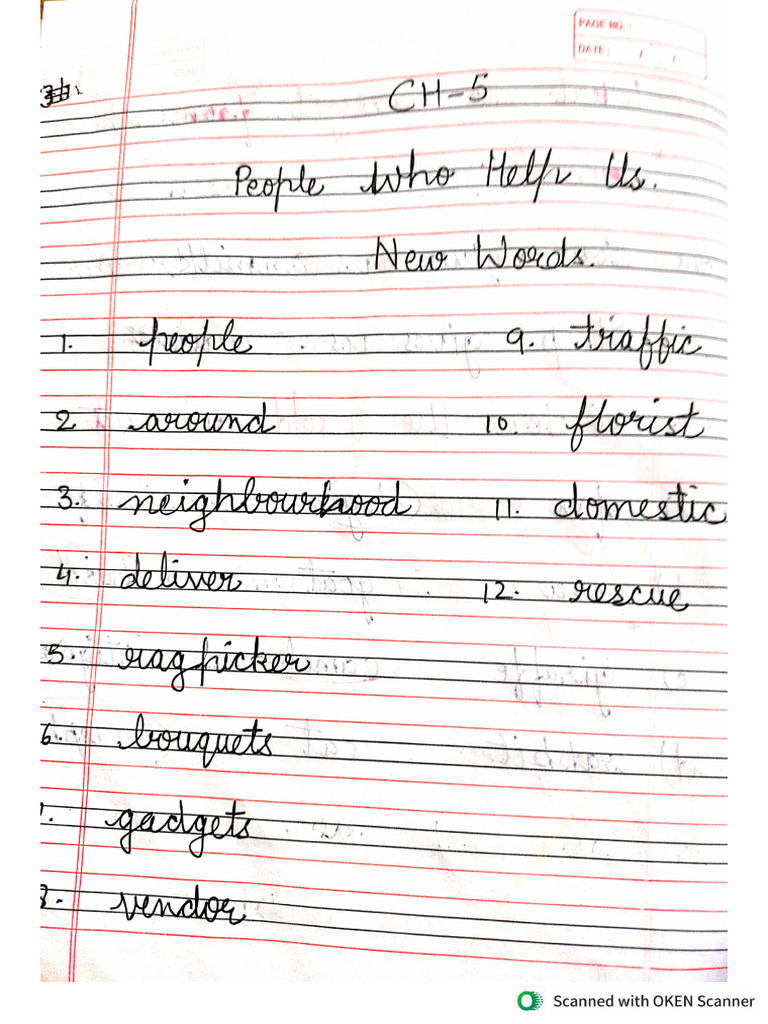 PAGE NO. :
DATE : / /
CH-5
People Who Help Us.
New Words.
1. people
2 around
3. neighbourhood
4. deliver
5. ragpicker
6. bouquets
7. gadgets
8. vendor
9. traffic
10. florist
11. domestic
12. rescue
Scanned with OKEN Scanner